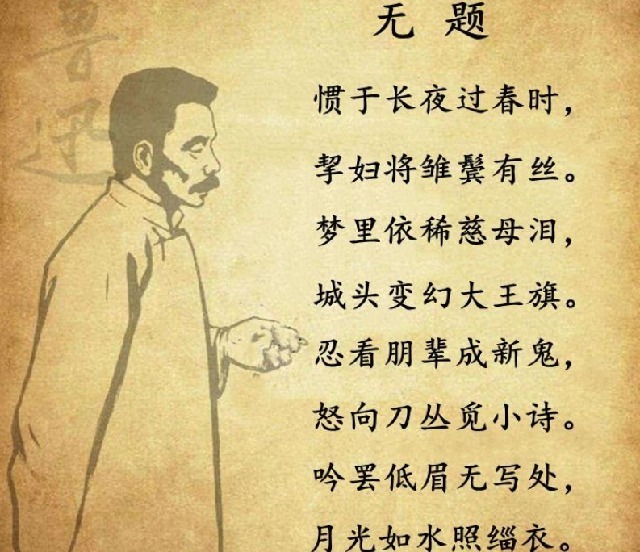 无题
惯于长夜过春时，
挈妇将雏鬓有丝。
梦里依稀慈母泪，
城头变幻大王旗。
忍看朋辈成新鬼，
怒向刀丛觅小诗。
吟罢低眉无写处，
月光如水照缁衣。
鲁迅